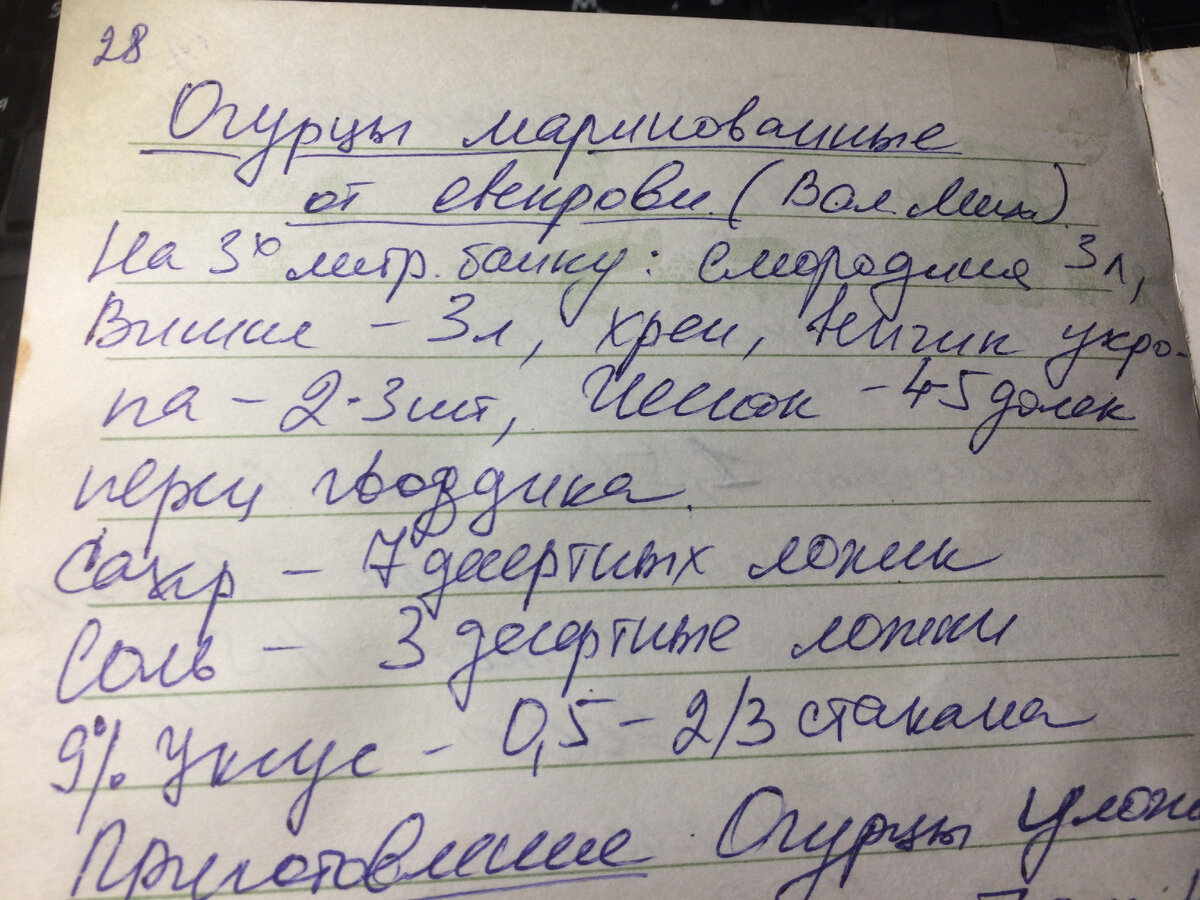 28
Огурцы маринованные
от свекрови (Вал. Мих.)
На 3х литр. банку: смородина 3 л,
Вишня - 3 л, хрен, пучик укро-
па - 2-3 шт, Чеснок - 4-5 долек
перец гвоздика.
Сахар - 7 десертных ложек
Соль - 3 десертные ложки
9% Уксус - 0,5 - 2/3 стакана
Приготовление Огурцы улож